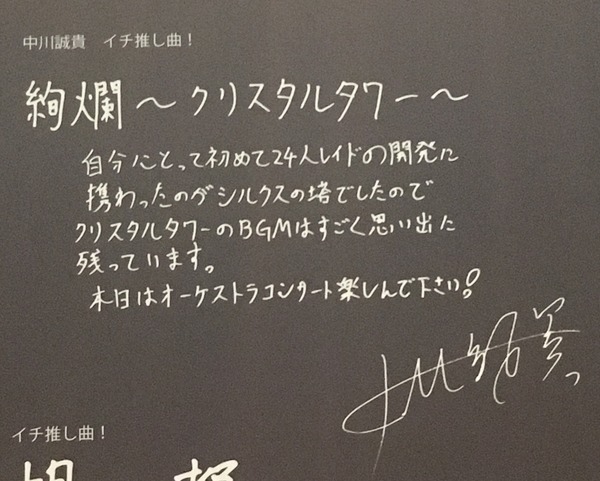 中川誠貴　イチ推し曲！
絢爛～クリスタルタワー～
自分にとって初めて24人レイドの開発に
携わったのがシルクスの塔でしたので
クリスタルタワーのBGMはすごく思い出に
残っています。
本日はオーケストラコンサート楽しんで下さい！
イチ推し曲！